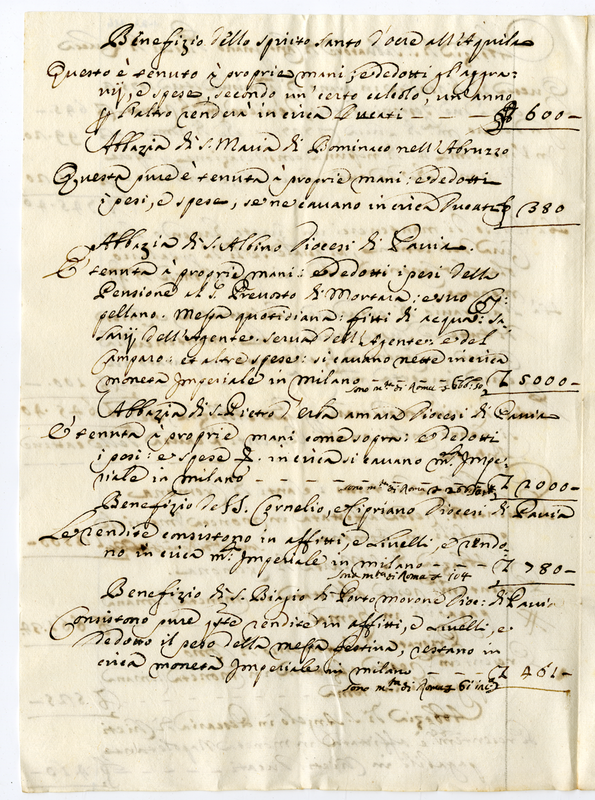 Benefizio dello spirito santo d'ocre all'Aquila
Questo è tenuto à proprie mani; e dedotti gl'aggra-
vij, e spese, secondo un certo calcolo, un'anno
p l'altro renderà in circa Ducati - - - - 600-
Abbazia di S. Maria di Bominaco nell'Abruzzo
Questa pure è tenuta à proprie mani: e dedotti
i pesi, e spese, se ne cavano in circa Ducati 380
Abbazia di S. Albino Diocesi di Pavia.
E' tenuta à proprie mani: e dedotti i pesi della
Pensione al S. Prevosto di Mortara: e suo Cap-
pellano. Messa quotidiana: fitti di acqua: Sa-
larij dell'Agente. Serva dell'Agente: e del
Camparo: et altre spese: si cavano nette in circa
moneta Imperiale in Milano £ 5000-
sono mta di Roma
Abbazia di S. Pietro d'Erba amara Diocesi di Pavia
E' tenuta à proprie mani come sopra: e dedotti
i pesi: e spese in circa si cavano mta Impe-
riale in milano - - - - - - £ 2000-
sono mta di Roma
Benefizio de SS. Cornelio, e Cipriano Diocesi di Pavia
Le rendite consistono in affitti, e Livelli, e rendo-
no in circa mta Imperiale in milano - - - £ 780-
sono mta di Roma 104
Benefizio di S. Biagio di Porto morone Dioc: di Pavia
Consistono pure qste rendite in affitti, e Livelli, e
dedotto il peso della messa festiva, restano in
circa moneta Imperiale in milano - - - £ 461-
sono mta di Roma 61